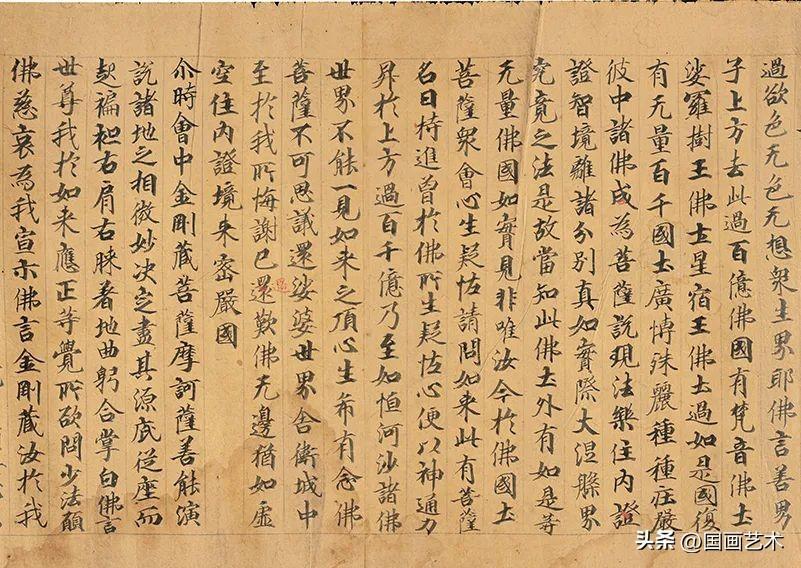 過欲色无色无想衆生界耶佛言善男
子上方去此過百億佛國有梵音佛土
娑羅樹王佛土星宿王佛土過如是國復
有无量百千國土廣博殊麗種種莊嚴
彼中諸佛咸為菩薩說現法樂住內證
證智境離諸分別真如實際大涅槃界
究竟之法是故當知此佛土外有如是等
无量佛國如實見非唯汝今於佛國土
菩薩衆會心生疑怯請問如來此有菩薩
名曰持進曾於佛所生疑怯心便以神通力
昇於上方過百千億乃至如恒河沙諸佛
世界不能一見如來之頂心生希有念佛
菩薩不可思議還娑婆世界舍衛城中
至於我所悔謝已還歎佛无邊猶如虛
空住內證境來密嚴國
尒時會中金剛藏菩薩摩訶薩善能演
說諸地之相微妙決定盡其源底從座而
起褊袒右肩右膝著地曲躬合掌白佛言
世尊我於如來應正等覺所欲問少法願
佛慈哀為我宣示佛言金剛藏汝於我
头条 @国画艺术